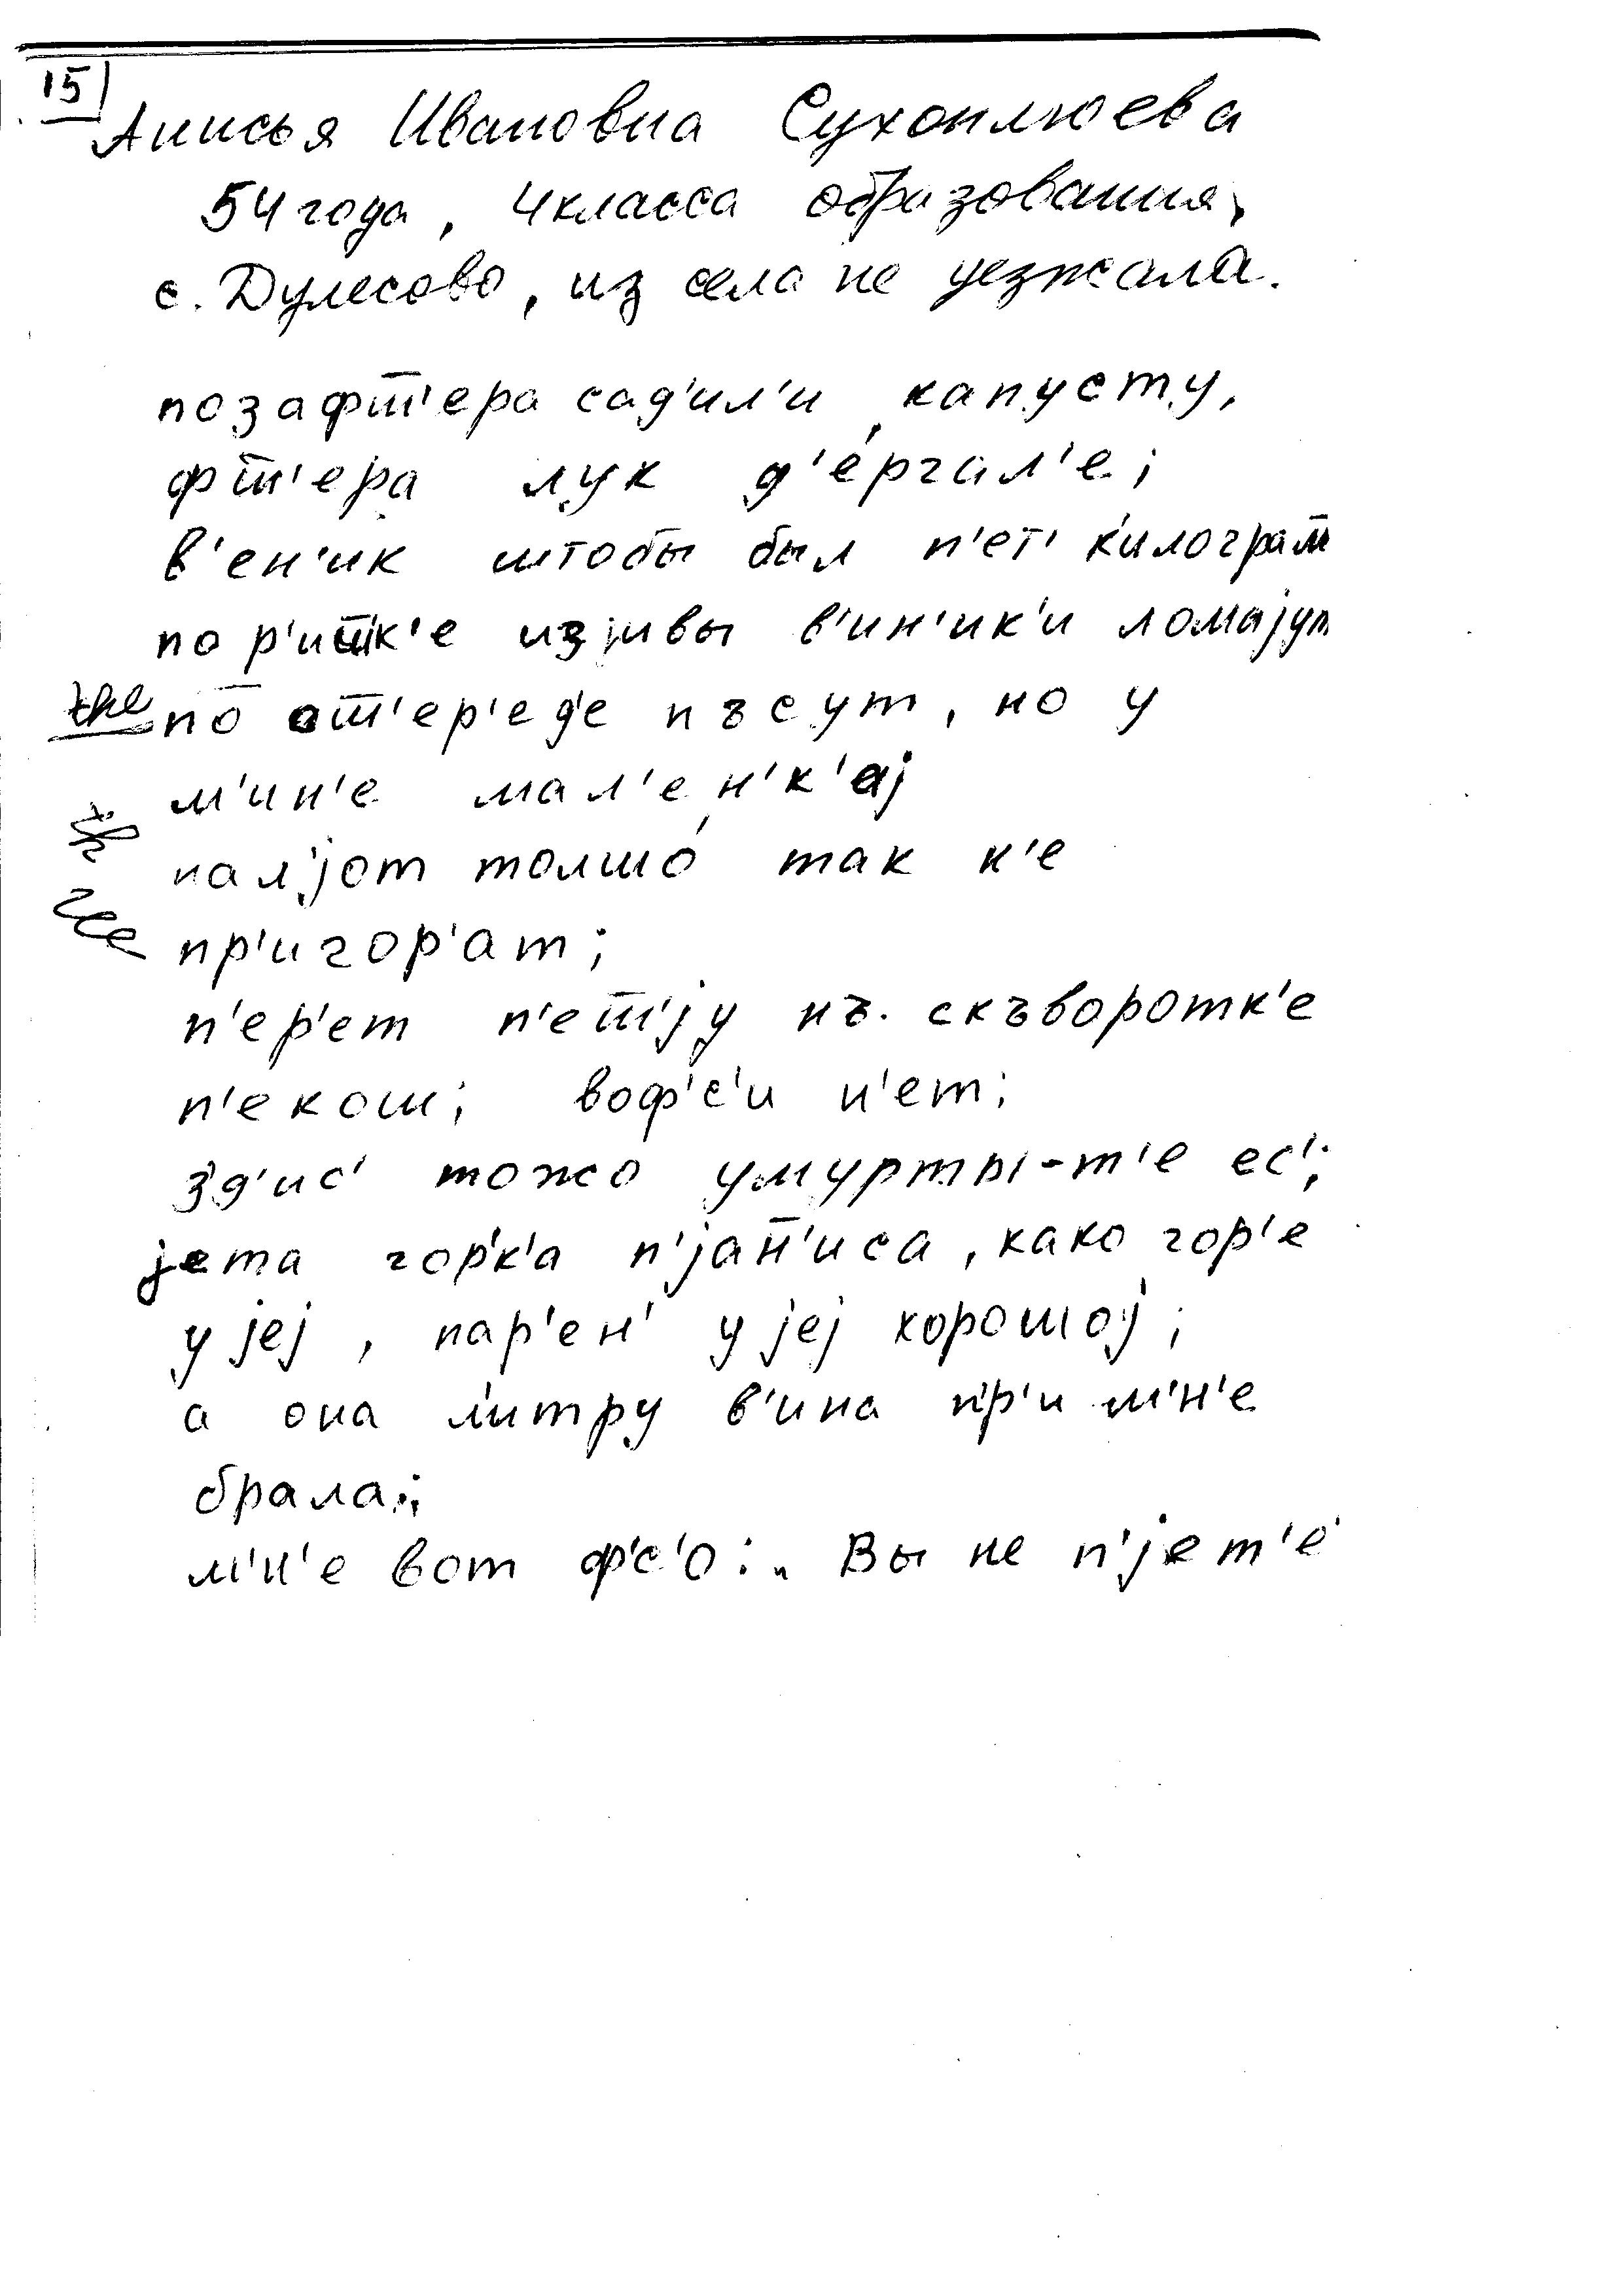 15
Анисья Ивановна Сухоплюева
54 года, 4 класса образования,
с. Дулесово, из села не уезжала.
позафт̅'ера сад'ил'и капусту,
фт̅'ера лук д'е́ргал'е;
в'ен'ик штобы был п'ет' к'илограм
по р'ит̅к'е из ивы в'ин'ик'и ломаjут
по от̅'ер'ед'е пъсут, но у
м'ин'е мал'ен'к'аj
нал'jот толшо́ так н'е
пр'игор'ат;
п'ер'ет п'ет̅'jу нъ скъворотк'е
п'екош; воф'с'и н'ет;
зд'ис' тожо умурты-т'е ес';
jета гор'к'а п'jан'иса, како гор'е
у jеj, пар'ен' у jеj хорошоj;
а она л'итру в'ина пр'и м'н'е
брала;
м'н'е вот ф'с'о: Вы не п'jет'е